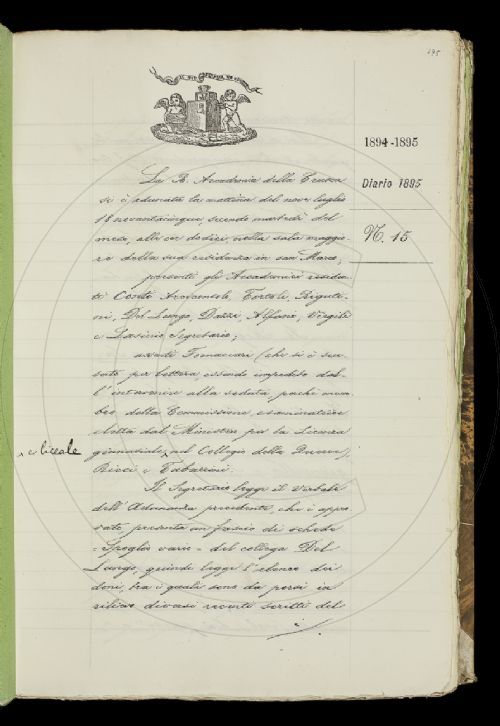 195
IL PIÙ BEL FIOR NE COGLIE
1894-1895
Diario 1895
N. 15
La R. Accademia della Crusca
si è adunata la mattina del nove luglio
18 novantacinque, secondo martedì del
mese, alle ore dodici, nella sala maggio-
re della sua residenza in san Marco;
presenti gli Accademici residen-
ti Conti Arciconsolo, Tortoli, Riguti-
ni, Del Lungo, Dazzi, Alfani, Vergili
e Lasinio Segretario;
assenti Tommasi (che si è scu-
sato per lettera essendo impedito dal-
l'intervenire alla seduta, perché mem-
bro della Commissione esaminatrice
eletta dal Ministro per la Licenza
ginnasiale, nel Collegio della Querce)
e liceale
Ricci e Tabarrini.
Il Segretario legge il Verbale
dell'Adunanza precedente, che è appro-
vato; presenta un fascio di schede
"Spoglio vario" del collega Del
Lungo; quindi legge l'elenco dei
doni, tra i quali sono da porsi in
rilievo diversi recenti scritti del